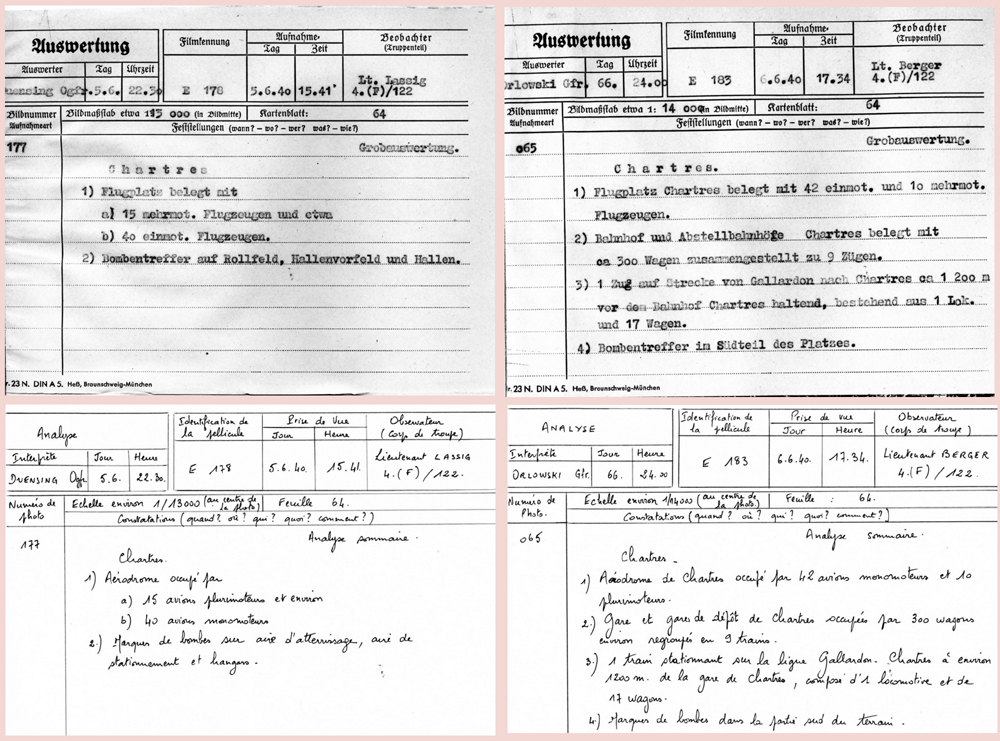 Auswertung
Filmkennung
Aufnahme-
Tag Zeit
Beobachter
(Truppenteil)
Auswerter Tag Uhrzeit
Duensing Ogfr. 5.6. 22.30
E 178
5.6.40 15.41'
Lt. Lassig
4.(F)/122
Bildnummer
Aufnahmeart
Bildmaßstab etwa 1: 000 (in Bildmitte) Kartenblatt: 64
Feststellungen (wann? – wo? – wer? was? – wie?)
177
Grobauswertung.
Chartres
1) Flugplatz belegt mit
a) 15 mehrmot. Flugzeugen und etwa
b) 40 einmot. Flugzeugen.
2) Bombentreffer auf Rollfeld, Hallenvorfeld und Hallen.
r. 23 N. DIN A 5. Heß, Braunschweig-München
Auswertung
Filmkennung
Aufnahme-
Tag Zeit
Beobachter
(Truppenteil)
Auswerter Tag Uhrzeit
Orlowski Gfr. 66. 24.00
E 183
6.6.40 17.34
Lt. Berger
4.(F)/122
Bildnummer
Aufnahmeart
Bildmaßstab etwa 1: 14 000 (in Bildmitte) Kartenblatt: 64
Feststellungen (wann? – wo? – wer? was? – wie?)
065
Grobauswertung.
Chartres.
1) Flugplatz Chartres belegt mit 42 einmot. und 1o mehrmot.
Flugzeugen.
2) Bahnhof und Abstellbahnhöfe Chartres belegt mit
ca 300 Wagen zusammengestellt zu 9 Zügen.
3) 1 Zug auf Strecke von Gallardon nach Chartres ca 1 200 m
vor dem Bahnhof Chartres haltend, bestehend aus 1 Lok.
und 17 Wagen.
4) Bombentreffer im Südteil des Platzes.
r. 23 N. DIN A 5. Heß, Braunschweig-München
Analyse
Identification de
la pellicule
Prise de Vue
Jour Heure
Observateur
(Corps de troupe)
Interprète Jour Heure
DUENSING Ogfr 5.6. 22.30.
E 178
5.6.40. 15.41.
Lieutenant LASSIG
4.(F)/122.
Numéro de
photo
Echelle environ 1/13000 (au centre de la photo) Feuille 64.
Constatations (quand? où? qui? quoi? comment?)
177
Analyse sommaire.
Chartres.
1) Aérodrome occupé par
a) 15 avions plurimoteurs et environ
b) 40 avions monomoteurs
2.) Marques de bombes sur aire d'atterrissage, aire de
stationnement et hangars.
ANALYSE
Identification de
la pellicule
Prise de vue
Jour Heure
Observateur
(Corps de troupe)
Interprète Jour Heure
ORLOWSKI Gfr. 66. 24.00
E 183
6.6.40. 17.34.
Lieutenant BERGER
4.(F)/122.
Numéro de
Photo.
Echelle environ 1/14000 (au centre de la photo) Feuille : 64.
Constatations (quand? où? qui? quoi? comment?)
065
Analyse sommaire.
Chartres.
1) Aérodrome de Chartres occupé par 42 avions monomoteurs et 10
plurimoteurs.
2.) Gare et gare de dépôt de Chartres occupées par 300 wagons
environ regroupés en 9 trains.
3.) 1 train stationnant sur la ligne Gallardon. Chartres à environ
1200 m. de la gare de Chartres, composé d'1 locomotive et de
17 wagons.
4.) Marques de bombes dans la partie sud du terrain.